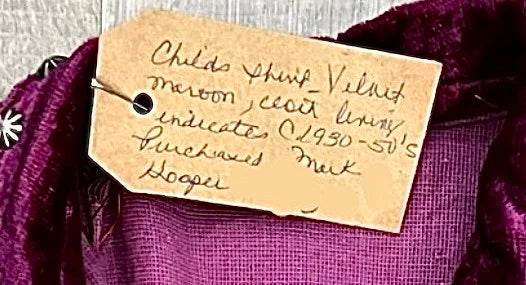 Childs shirt - Velvet
maroon, lining
indicates C1930-50's
Purchased Mark
Hooper